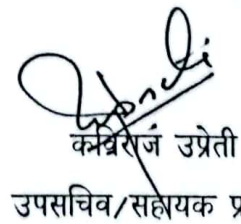 कविराज उप्रेती
उपसचिव/सहायक प्र